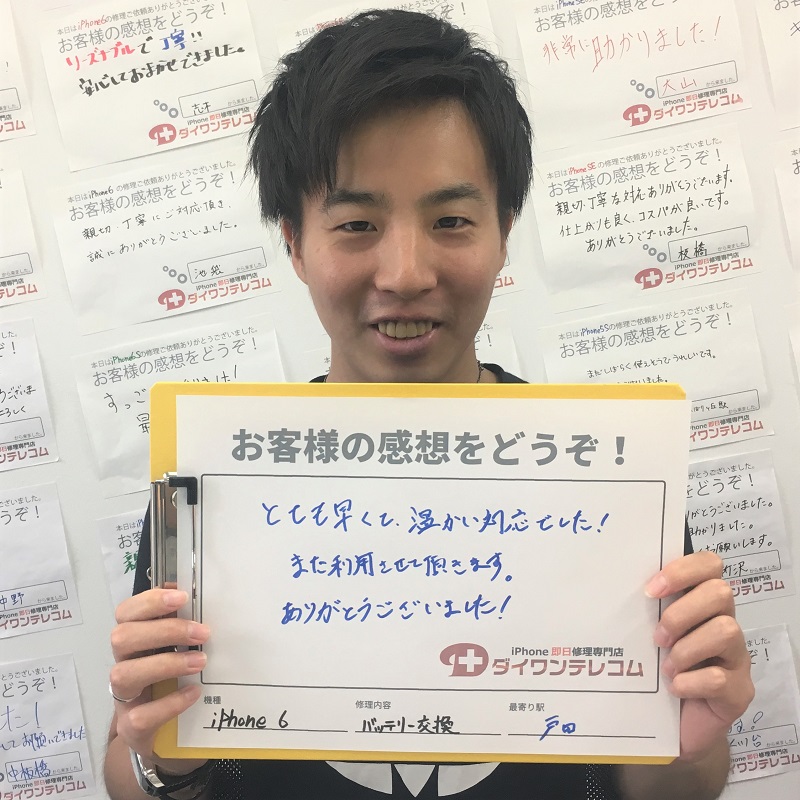 本日はiPhone6の修理ご依頼ありがとうございました。
お客様の感想をどうぞ！
リーズナブルで丁寧!!
安心しておまかせできました。
志木
から来ました。
iPhone 即日修理専門店
ダイワンテレコム
非常に助かりました！
大山
から来ました。
iPhone 即日修理専門店
ダイワンテレコム
本日はiPhone6の修理ご依頼ありがとうございました。
お客様の感想をどうぞ！
親切、丁寧にご対応頂き、
誠にありがとうございました。
池袋
から来ました。
iPhone 即日修理専門店
ダイワンテレコム
本日はiPhoneSEの修理ご依頼ありがとうございました。
お客様の感想をどうぞ！
親切、丁寧な対応ありがとうございます。
仕上がりも良く、コスパが良いです。
ありがとうございました。
板橋
から来ました。
iPhone 即日修理専門店
ダイワンテレコム
本日はiPhone6Sの修理ご依頼ありがとうございました。
お客様の感想をどうぞ！
本日はiPhone5Sの修理ご依頼ありがとうございました。
お客様の感想をどうぞ！
まだしばらく使えそうでうれしいです。
お客様の感想をどうぞ！
とても早くて、温かい対応でした！
また利用させて頂きます。
ありがとうございました！
iPhone 即日修理専門店
ダイワンテレコム
機種
iphone 6
修理内容
バッテリー交換
最寄り駅
戸田
中野
から来ました。
ダイワンテレコム
中板橋
から来ました。